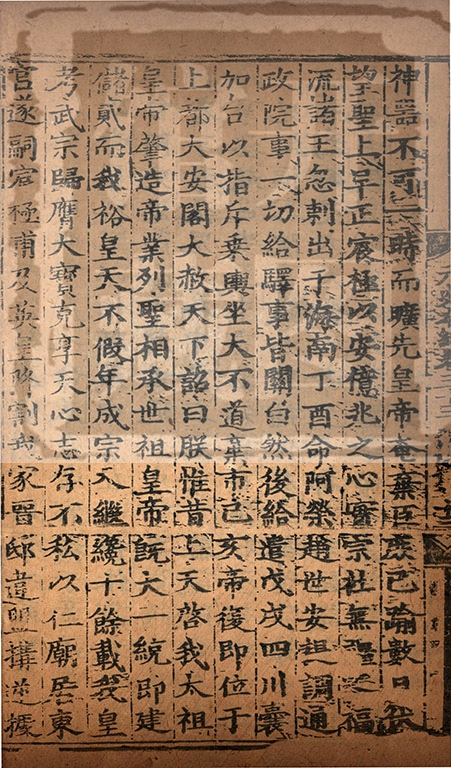 神器不可一時而曠先皇帝奄棄臣庶已踰數日伏
望聖上早正宸極以安億兆之心實宗社無之福
流諸王忽剌出于海南丁酉命阿榮趙世安祖調通
政院事一切給驛事皆關白然後給遣戊戌四川囊
加台以指斥乘輿坐大不道棄市己亥帝復即位于
上都大安閣大赦天下詔曰朕惟昔上天啓我太祖
皇帝肇造帝業列聖相承世祖皇帝既大一統即建
儲貳而我裕皇天不假年成宗入繼纔十餘載我皇
考武宗歸膺大寶克享天心志存不私以仁廟居東
宮遂嗣宸極甫及英皇降割我家晋邸違盟搆逆據